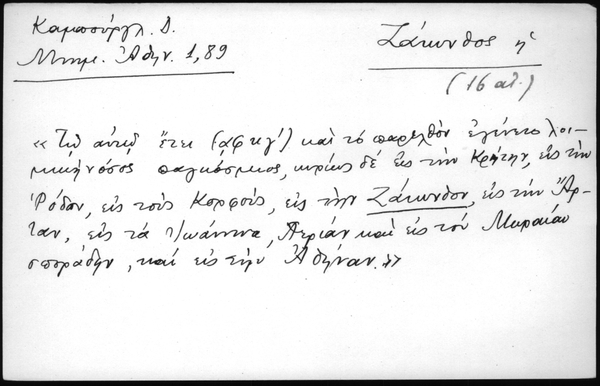 Καμπούργλ. Δ.
Μνημ. Ἀθην. 1,89
Ζάκυνθος ἡ
(16 αἰ.)
«Τῷ αὐτῷ ἔτει (αφκγ') καὶ τὸ παρελθὸν ἐγένετο λοι-
μικὴ νόσος παγκόσμιος, κυρίως δὲ εἰς τὴν Κρήτην, εἰς τὴν
Ῥόδον, εἰς τοὺς Κορφούς, εἰς τὴν Ζάκυνθον, εἰς τὴν Ἄρ-
ταν, εἰς τὰ Ἰωάννινα, καὶ εἰς τὸν Μωραίαν
σποράδην, καὶ εἰς τὴν Ἀθήναν.»